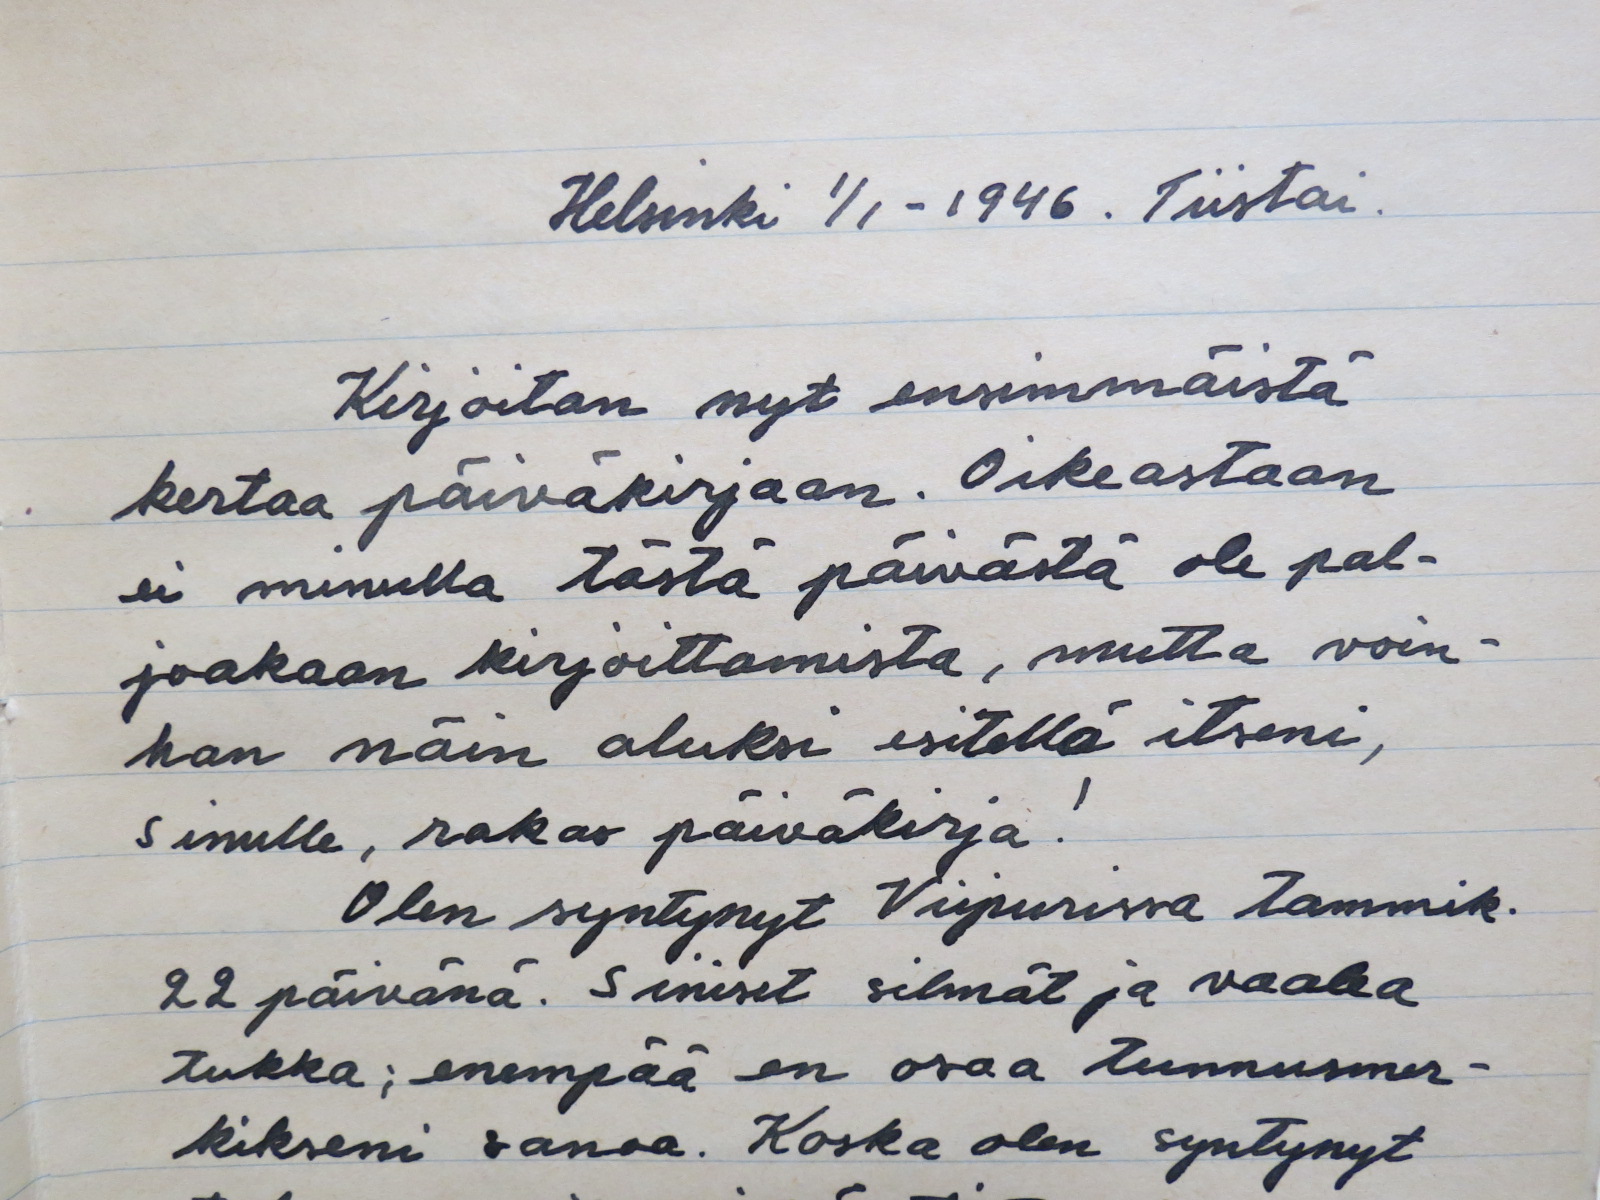 Helsinki 1/1-1946. Tiistai.
Kirjoitan nyt ensimmäistä
kertaa päiväkirjaan. Oikeastaan
ei minulla tästä päivästä ole pal-
joakaan kirjoittamista, mutta voin-
han näin aluksi esitellä itseni,
sinulle, rakas päiväkirja!
Olen syntynyt Viipurissa tammik.
22 päivänä. Siniset silmät ja vaalea
tukka; enempää en osaa tunnusmer-
kikseni sanoa. Koska olen syntynyt